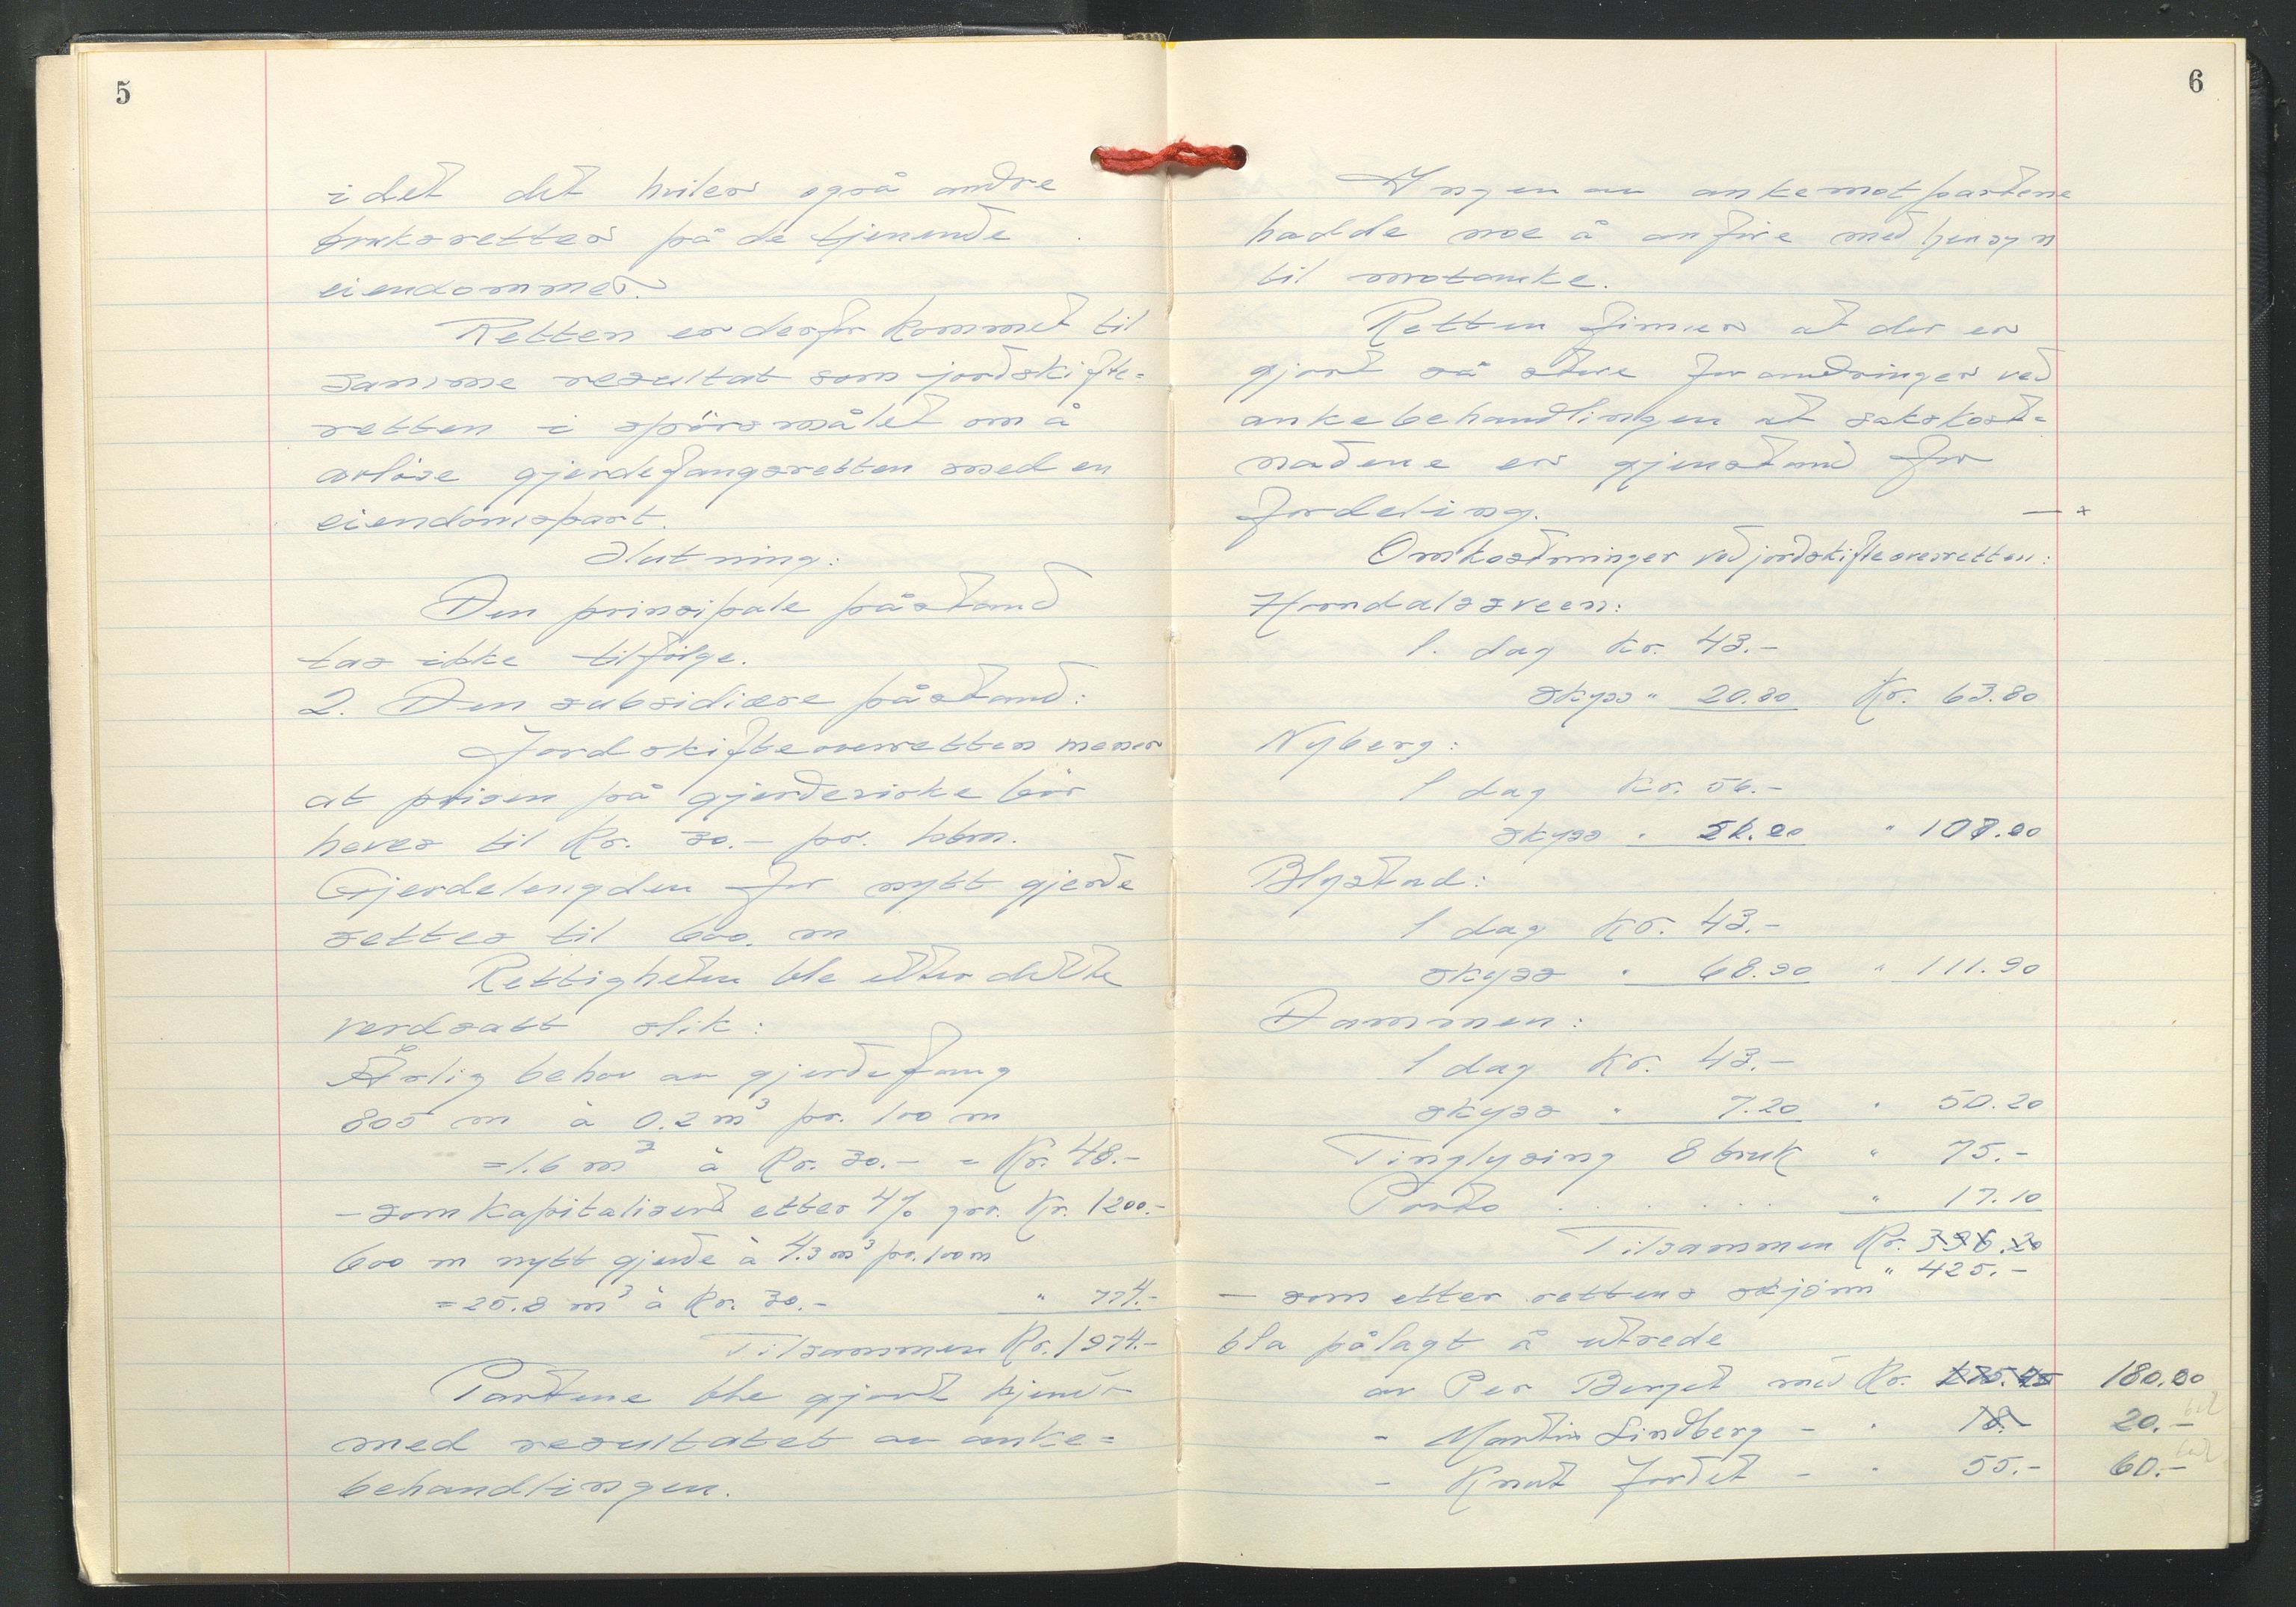 5
i det det hviler også andre
bruksretter på de tjenende
eiendommer.
Retten er derfor kommet til
samme resultat som jordskifte=
retten i spørsmålet om å
avløse gjerdefangsretten med en
eiendomspart.
Slutning:
Den prinsipale påstand
tas ikke tilfølge.
2. Den subsidiære påstand:
Jordskifteoverretten mener
at prisen på gjerdevirke bør
heves til Kr. 30.- pr. kbm.
Gjerdelengden for nytt gjerde
settes til 600. m
Rettigheten ble etter dette
verdsatt slik:
Årlig behov av gjerdefang
805 m à 0.2 m³ pr. 100 m
=1.6 m³ à Kr. 30.- = Kr. 48.-
- som kapitalisert etter 4% gir. Kr. 1200.-
600 m nytt gjerde à 4.3 m³ pr. 100 m
=25.8 m³ à Kr. 30.- " 774.-
Tilsammen Kr. 1974.-
Partene ble gjort kjent
med resultatet av anke=
behandlingen.
6
Ingen av ankemotpartene
hadde noe å anføre med hensyn
til motanke.
Retten finner at der er
gjort så store forandringer ved
ankebehandlingen at sakskost=
nadene er gjenstand for
fordeling. — +
Omkostninger ved jordskifteoverretten:
1. dag kr. 43.-
skyss " 20.80 Kr. 63.80
Nyberg:
1 dag Kr. 56.-
skyss " 108.00
Blystad:
1 dag Kr. 43.-
skyss " 68.90 " 111.90
Dammen:
1 dag Kr. 43.-
skyss " 7.20 " 50.20
Tinglysing 8 bruk " 75.-
Porto . . . . . . " 17.10
Tilsammen Kr.
" 425.-
- som etter rettens skjønn
bla pålagt å utrede
av Per Berget med Kr. 180.00
- Martin Lindberg - " 18.- 20.-
- Knut Jordet - " 55.- 60.-